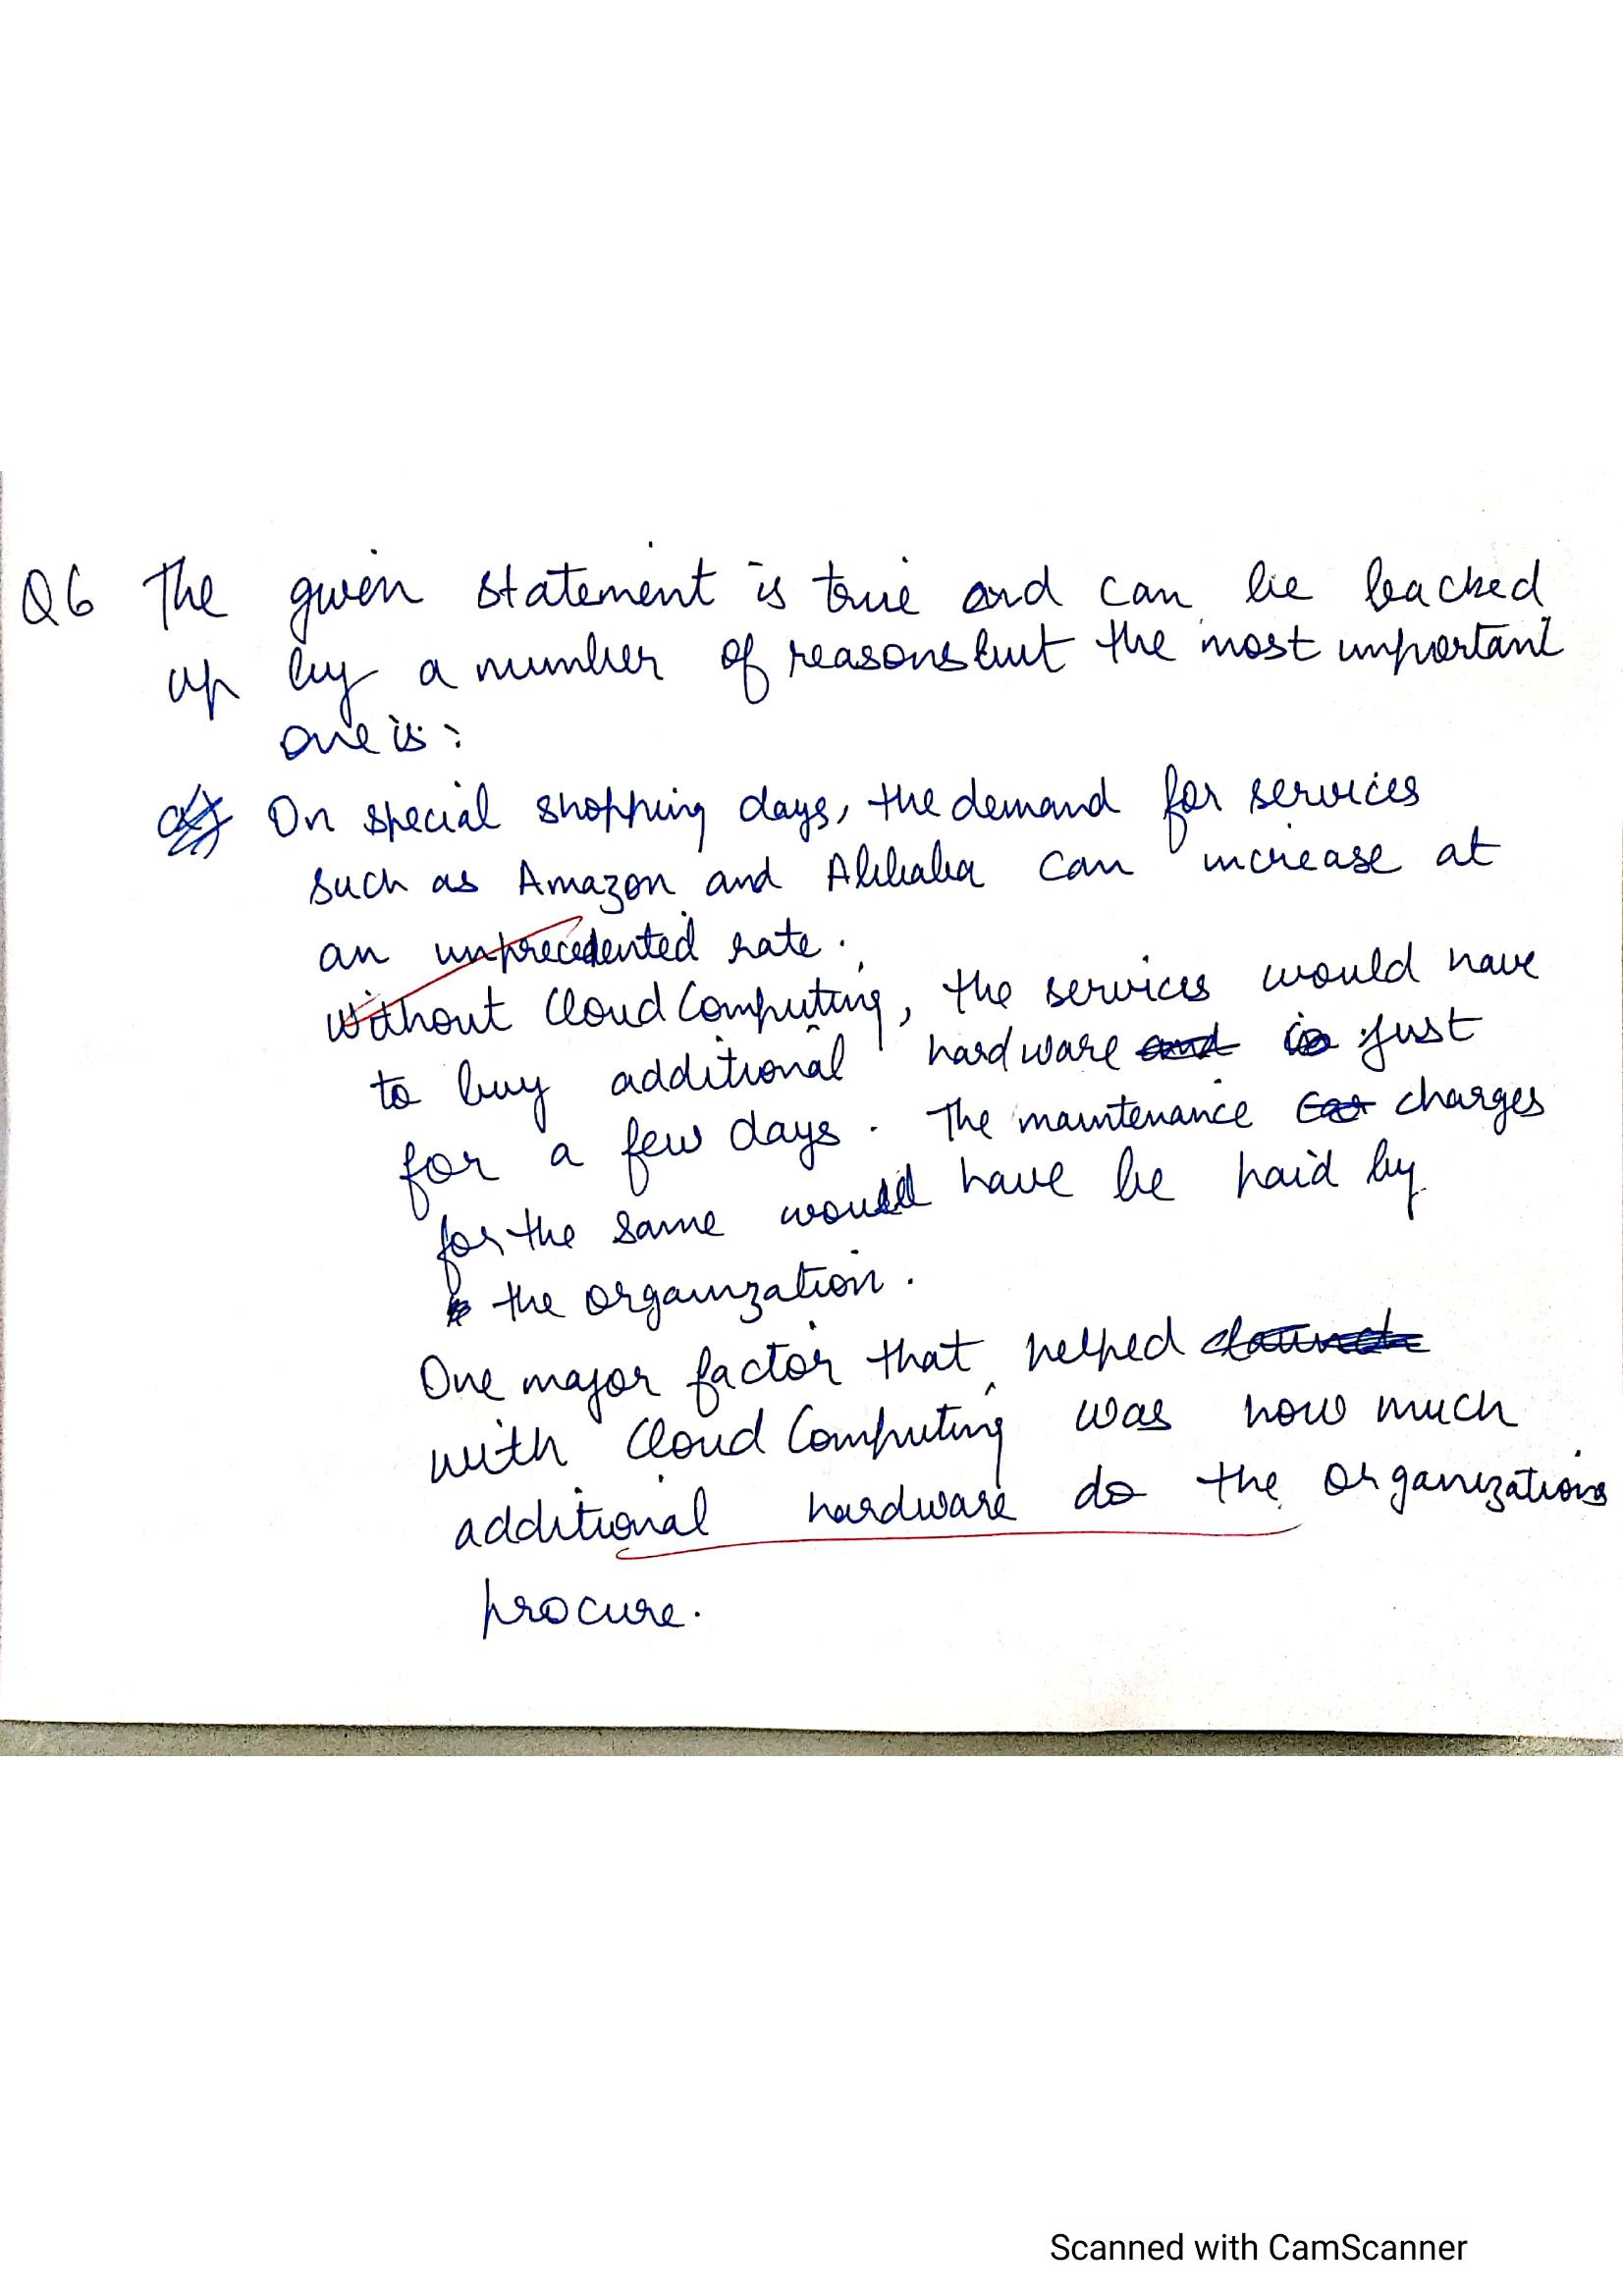 Q6 The given statement is true and can be backed
up by a number of reasons but the most important
one is :
On special shopping days, the demand for services
such as Amazon and Alibaba can increase at
an unprecedented rate .
without Cloud Computing, the services would have
to buy additional hardware just
for a few days . The maintenance charges
for the same would have be paid by
the organization .
One major factor that helped
with Cloud Computing was how much
additional hardware do the organizations
procure.
Scanned with CamScanner